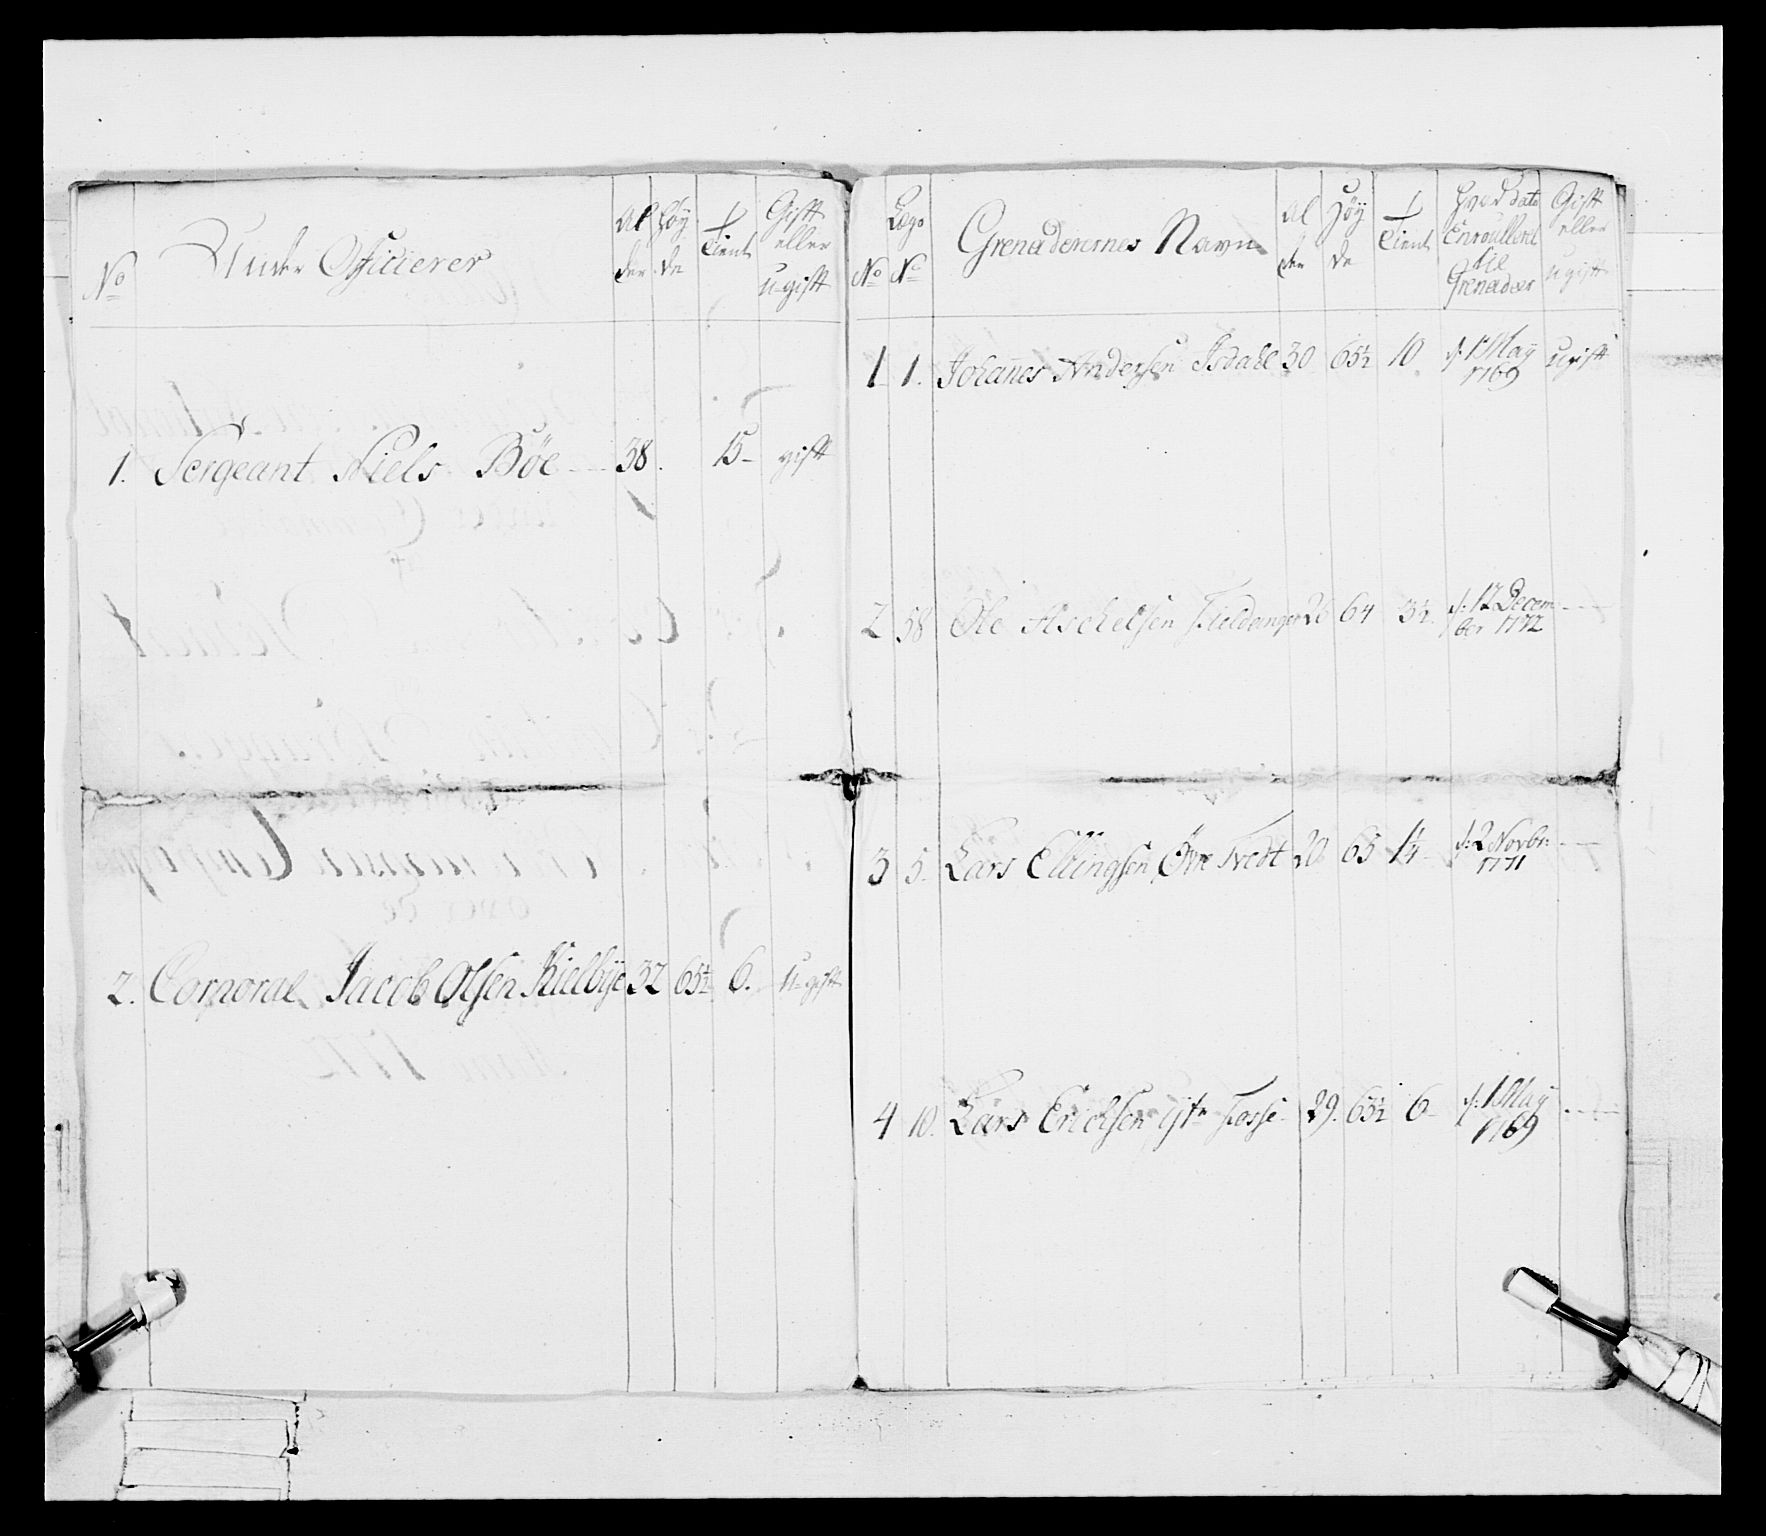 No Under Officierer Al der Høy de Tient Gift eller ugift
1. Sergeant Niels Bøe 38. 15 gift
2. Corporal Jacob Olsen Kielbÿe 32 65½ 6. u-gift
No Lægs No Grenaderernes Navn Al der Høy de Tient Hvad dato Enroulleret til Grenadeer Gift eller ugift
1 1. Johannes Andersen Isdahl 30 65½ 10 d: 1 Maÿ 1769 ugift
2 58 Ole Aschelsen Fieldanger 26 64 3½ d: 12 Decem ber 1772
3 5. Lars Ellingsen Øvre Tvedt 20 65 1¼ d: 2 Novbr: 1771
4 10. Lars Erichsen Fosse 29. 63½ 6 d: 1 Maÿ 1769